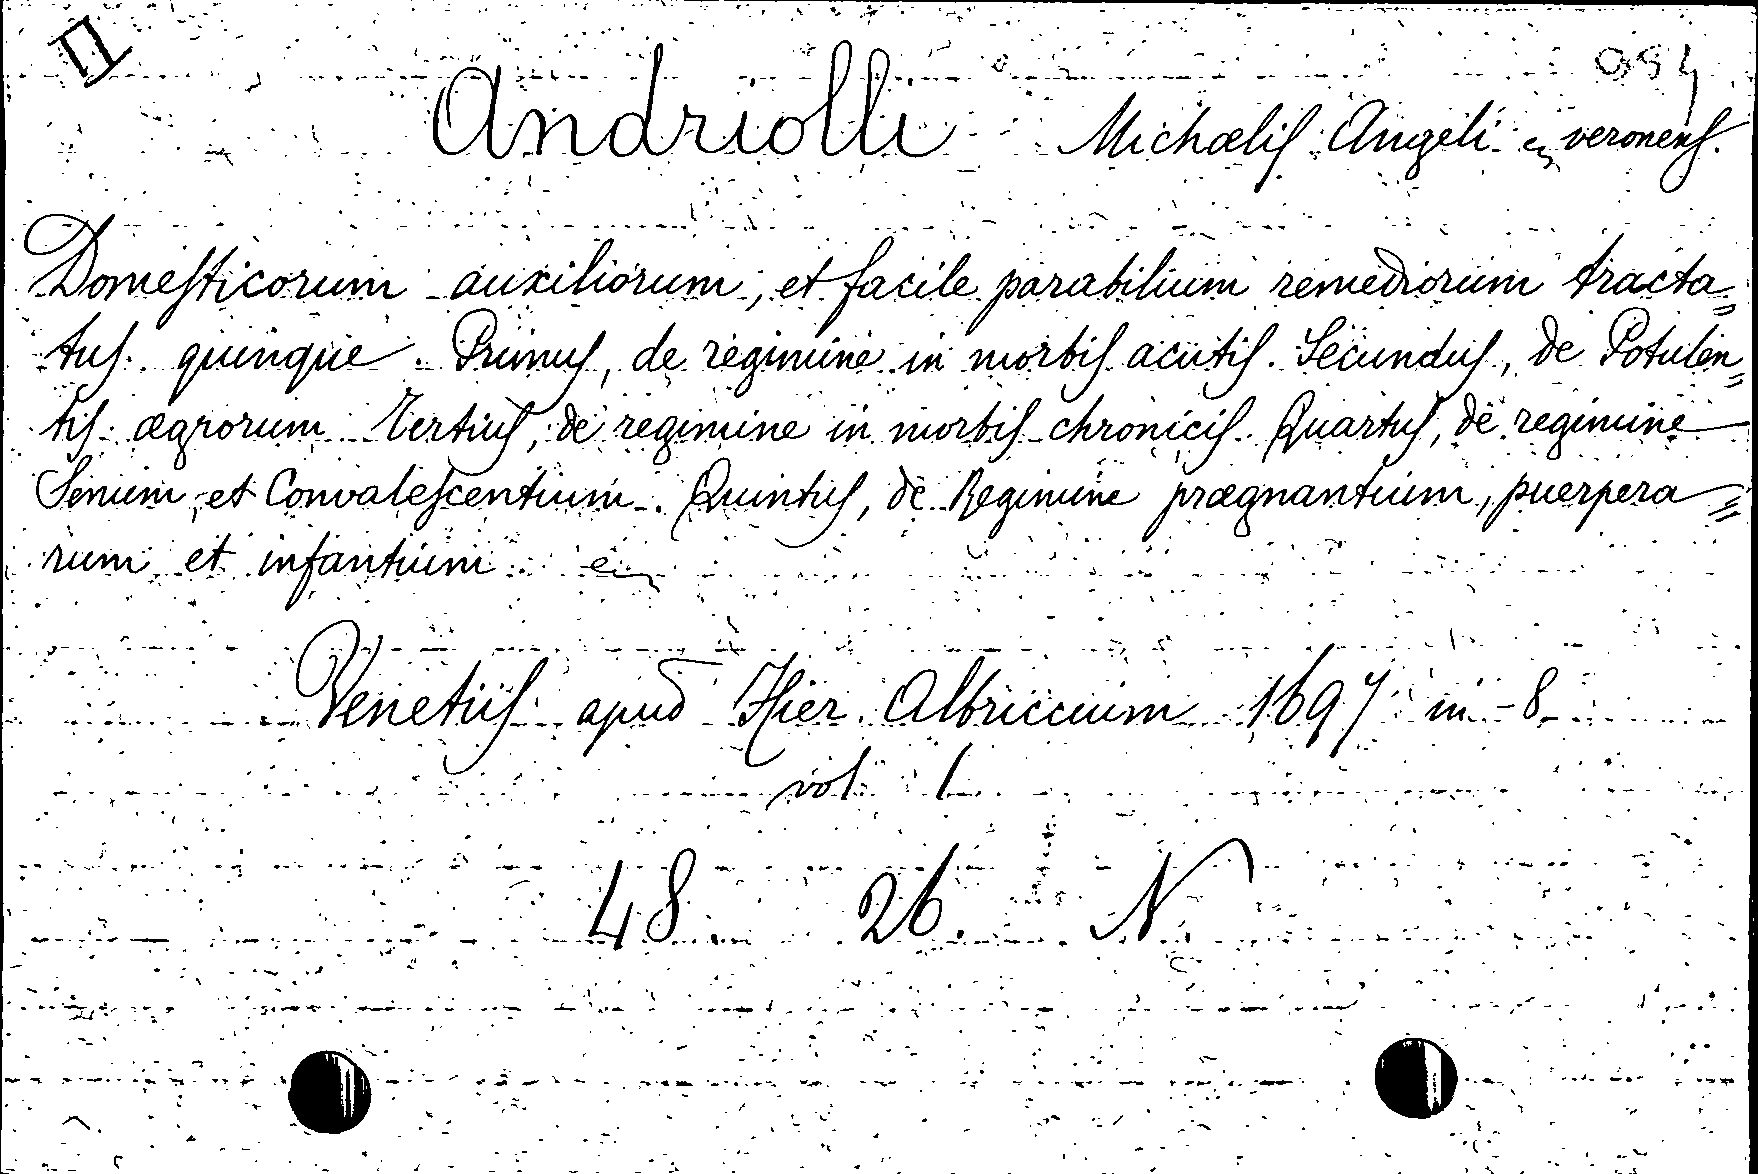 II
994
Andriolli Michælis Angeli veronens.
Domesticorum auxiliorum, et facile parabilium remediorum tracta=
tus quinque. Primus, de regimine in morbis acutis. Secundus, de Potulen=
tis ægrorum Tertius, de regimine in morbis chronicis. Quartus, de regimine
Senum et Convalescentium. Quintus, de Regimine prægnantium, puerpera=
rum et infantium
Venetiis apud Hier. Albriccium 1697 in-8.
vol 1
48. 26. N.